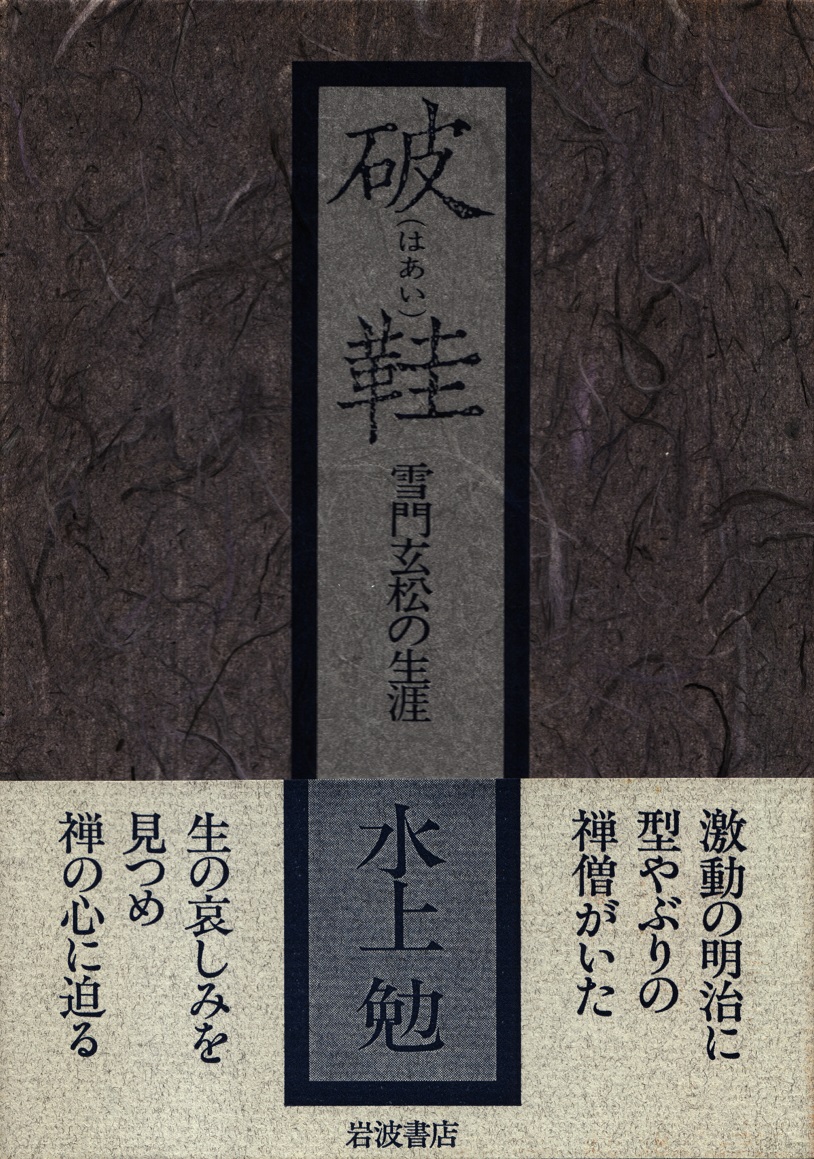 破
(はあい)
鞋
雪門玄松の生涯
水上勉
激動の明治に
型やぶりの
禅僧がいた
生の哀しみを
見つめ
禅の心に迫る
岩波書店